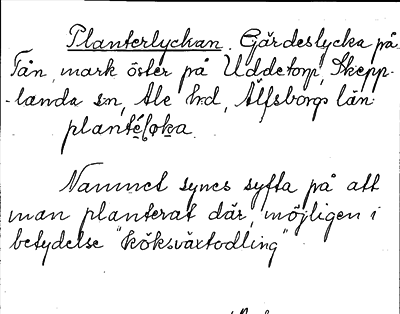 Planterlyckan. Gärdeslycka på
Tån, mark öster på Uddetorp, Skepp-
-landa sn, Ale hd, Älfsborgs län

Namnet synes syfta på att
man planterat där, möjligen i
betydelse "köksväxtodling"